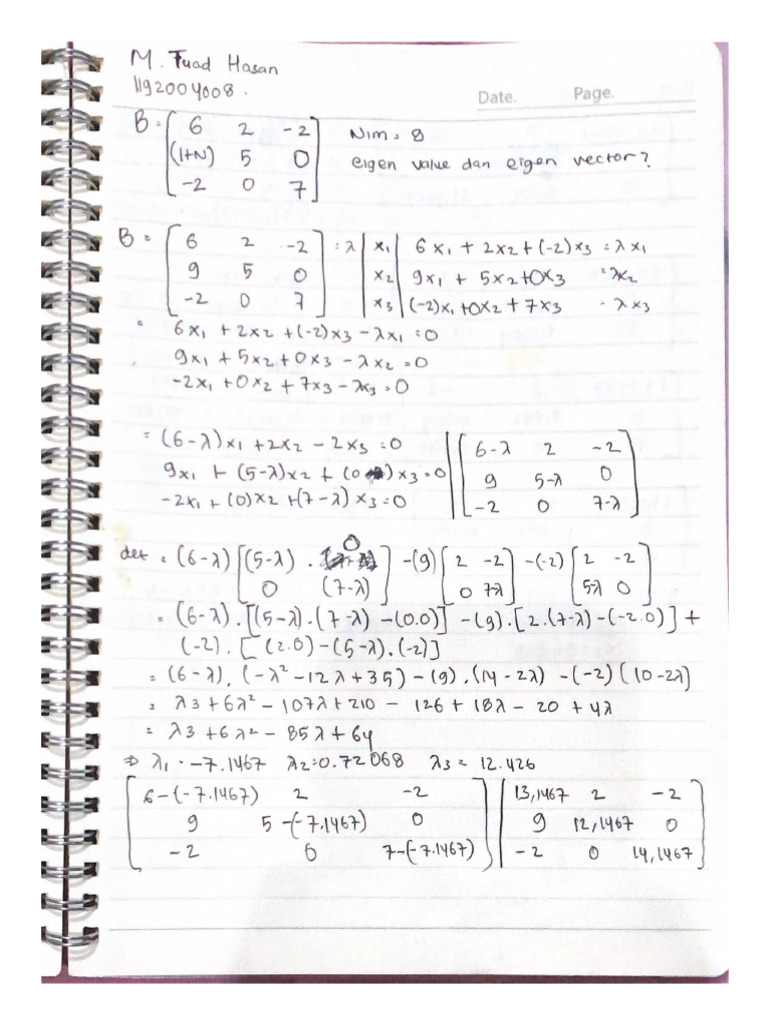 M. Fuad Hasan
1192004008.
Date. Page.
B = [ 6 2 -2 ] Nim = 8
(1+N) 5 0 eigen value dan eigen vector?
-2 0 7
B = [ 6 2 -2 ] = λ | x1 | 6x1 + 2x2 + (-2)x3 = λx1
9 5 0 x2 9x1 + 5x2 + 0x3 = λx2
-2 0 7 x3 (-2)x1 + 0x2 + 7x3 = λx3
= 6x1 + 2x2 + (-2)x3 - λx1 = 0
9x1 + 5x2 + 0x3 - λx2 = 0
-2x1 + 0x2 + 7x3 - λx3 = 0
= (6-λ)x1 + 2x2 - 2x3 = 0 [ 6-λ 2 -2 ]
9x1 + (5-λ)x2 + (0)x3 = 0 9 5-λ 0
-2x1 + (0)x2 + (7-λ)x3 = 0 -2 0 7-λ
det = (6-λ) [ (5-λ) . 0 ] - (9) [ 2 -2 ] - (-2) [ 2 -2 ]
0 (7-λ) 0 7-λ 5-λ 0
= (6-λ) . [(5-λ) . (7-λ) - (0.0)] - (9) . [2.(7-λ) - (-2.0)] +
(-2) . [ (2.0) - (5-λ) . (-2)]
= (6-λ) . (-λ² - 12λ + 35) - (9) . (14 - 2λ) - (-2) (10 - 2λ)
= λ3 + 6λ² - 107λ + 210 - 126 + 18λ - 20 + 4λ
= λ3 + 6λ² - 85λ + 64
⇒ λ1 = -7.1467 λ2 = 0.72068 λ3 = 12.426
[ 6-(-7.1467) 2 -2 ] [ 13,1467 2 -2 ]
9 5-(-7.1467) 0 9 12,1467 0
-2 0 7-(-7.1467) -2 0 14,1467